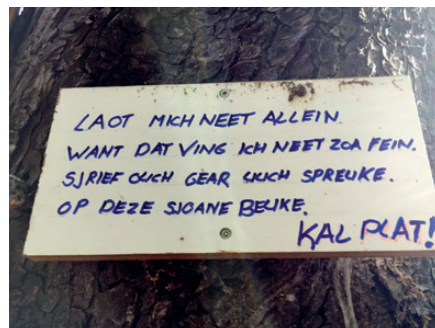 LAOT MICH NEET ALLEIN.
WANT DAT VING ICH NEET ZOA FEIN.
SJRIEF OUCH GEAR LIUCH SPREUKE.
OP DEZE SJOANE BEUKE.
KAL PLAT!